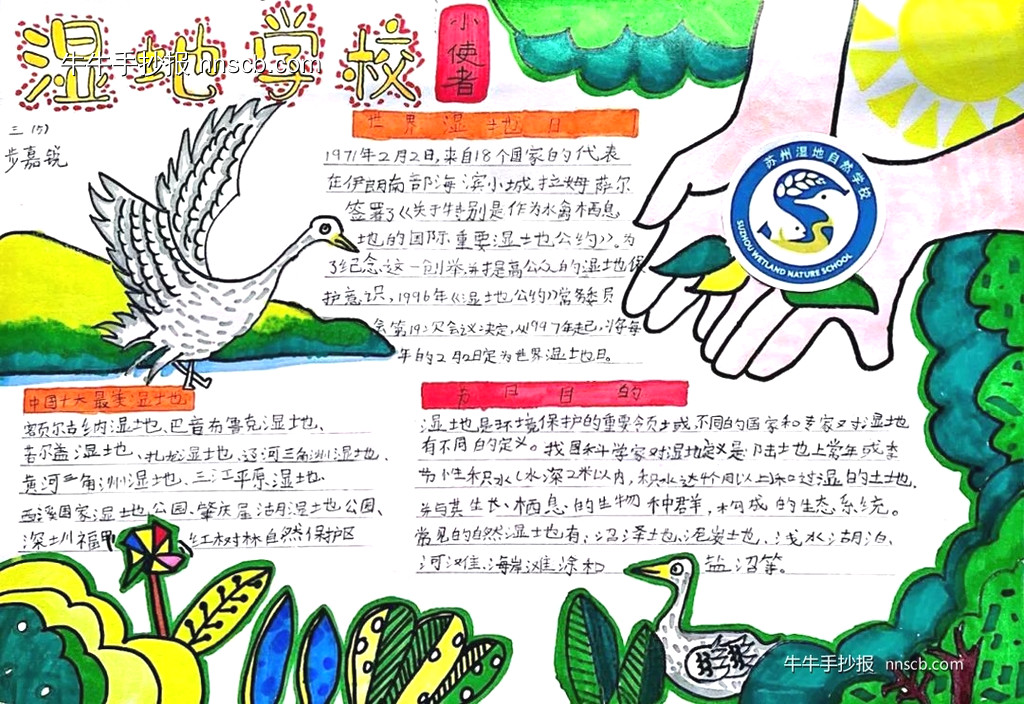 湿地学校
小使者
牛牛手抄报 nnscb.com
三(5)
步嘉锐
世界湿地日
1971年2月2日,来自18个国家的代表
在伊朗南部海滨小城拉姆萨尔
签署了《关于特别是作为水禽栖息
地的国际重要湿地公约》。为
了纪念这一创举并提高公众的湿地保
护意识,1996年《湿地公约》常务委员
会第19次会议决定,从1997年起,将每
年的2月2日定为世界湿地日。
苏州湿地自然学校
SUZHOU WETLAND NATURE SCHOOL
中国十大最美湿地
额尔古纳湿地、巴音布鲁克湿地、
若尔盖湿地、扎龙湿地、辽河三角洲湿地、
黄河三角洲湿地、三江平原湿地、
西溪国家湿地公园、肇庆星湖湿地公园、
深圳福田红树林自然保护区
节日目的
湿地是环境保护的重要领土或不同的国家和专家对湿地
有不同的定义。我国科学家对湿地定义是陆地上常年或季
节性积水(水深2米以内,积水达4个月以上)和过湿的土地,
并与其生长、栖息的生物种群,构成的生态系统。
常见的自然湿地有:沼泽地、泥炭地、浅水湖泊、
河滩、海岸滩涂和盐沼等。
牛牛手抄报 nnscb.com